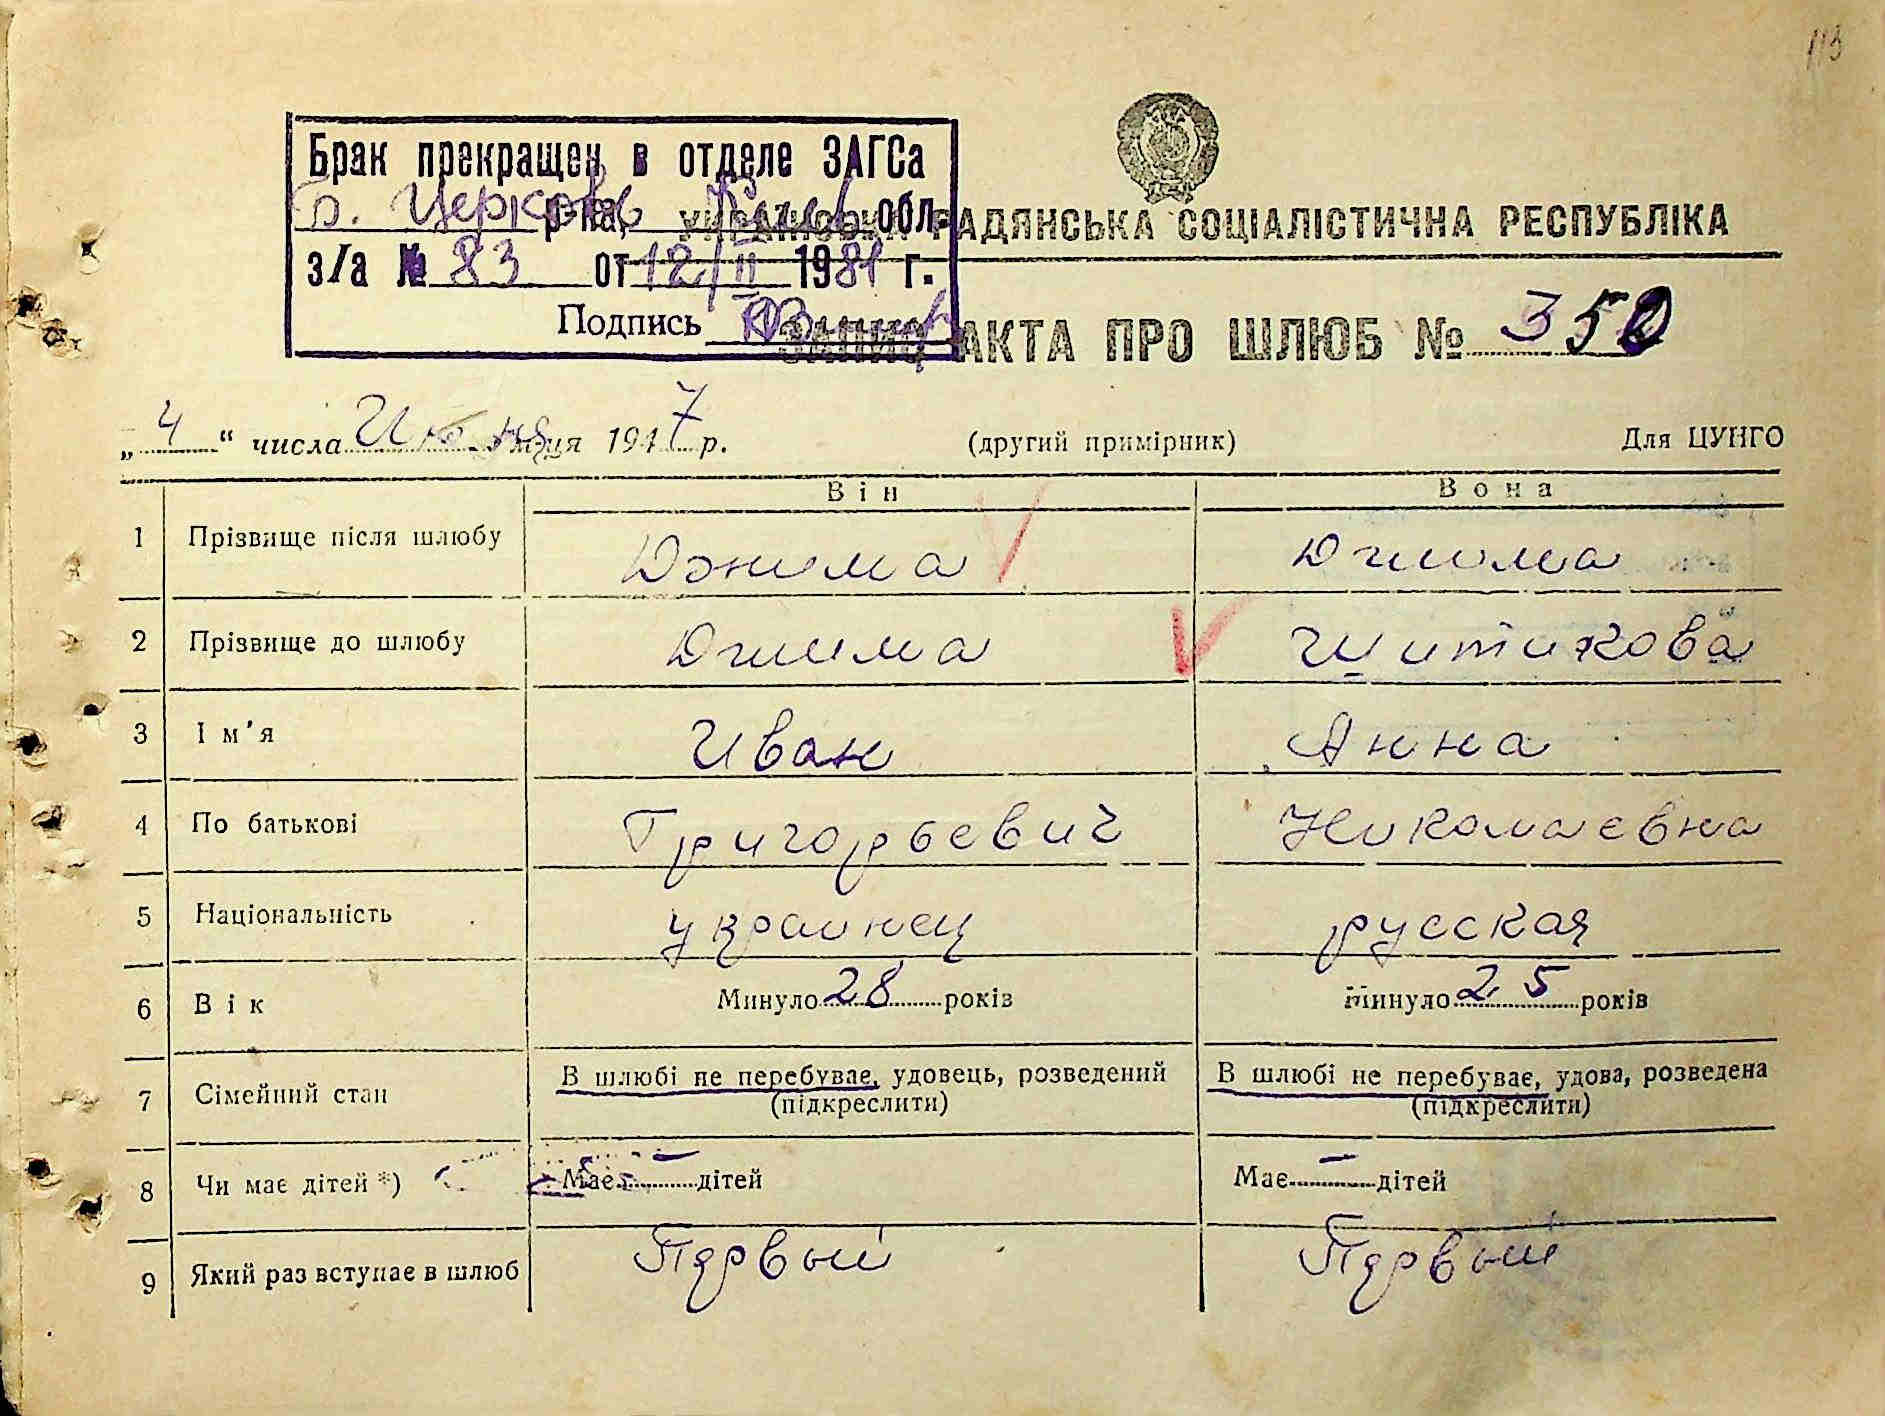 113
Брак прекращен в отделе ЗАГСа
Б. Церков р-ка, Киев обл.
з/а № 83 от 12/II 1981 г.
Подпись
УКРАЇНСЬКА РАДЯНСЬКА СОЦІАЛІСТИЧНА РЕСПУБЛІКА
ЗАПИС АКТА ПРО ШЛЮБ № 352
„ 4 “ числа Июня м-ця 1947 р. (другий примірник) Для ЦУНГО
Він Вона
1 Прізвище після шлюбу
2 Прізвище до шлюбу Щитикова
3 Ім'я Иван Анна
4 По батькові Григорьевич Николаевна
5 Національність украинец русская
6 Вік Минуло 28 років Минуло 25 років
7 Сімейний стан В шлюбі не перебуває, удовець, розведений В шлюбі не перебуває, удова, розведена
(підкреслити) (підкреслити)
8 Чи має дітей *) Має — дітей Має — дітей
9 Який раз вступає в шлюб Первый Первый